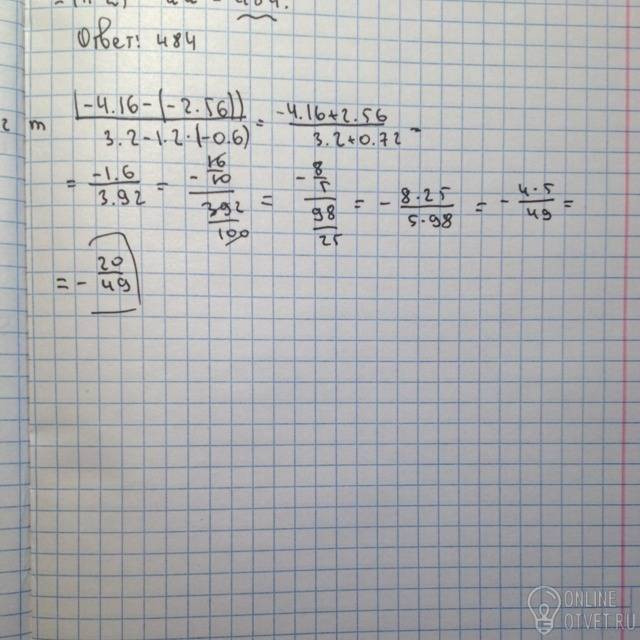 Ответ: 484
2 m (-4.16-(-2.56))/(3.2-1.2·(-0.6)) = (-4.16+2.56)/(3.2+0.72) =
= -1.6/3.92 = - (16/10)/(392/100) = - (8/5)/(98/25) = - 8·25/5·98 = - 4·5/49 =
= - 20/49
ONLINE
OTVET.RU